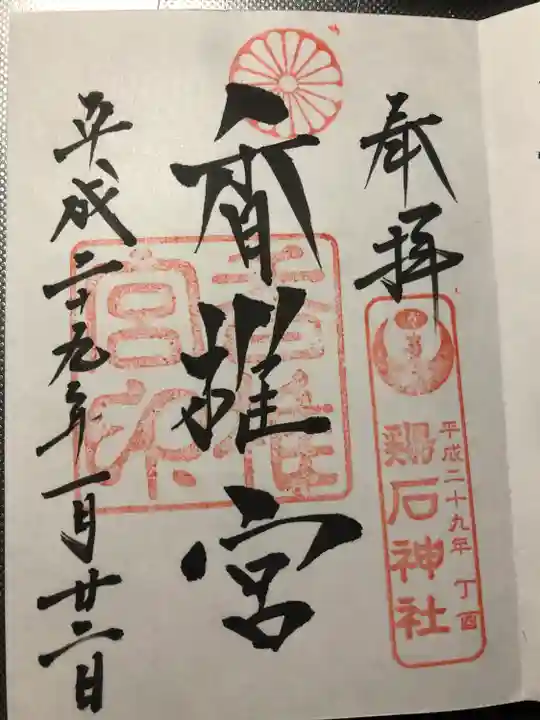 奉拝
鶏石神社
平成二十九年 丁酉
香椎宮
香椎宮印
平成二十九年一月廿二日